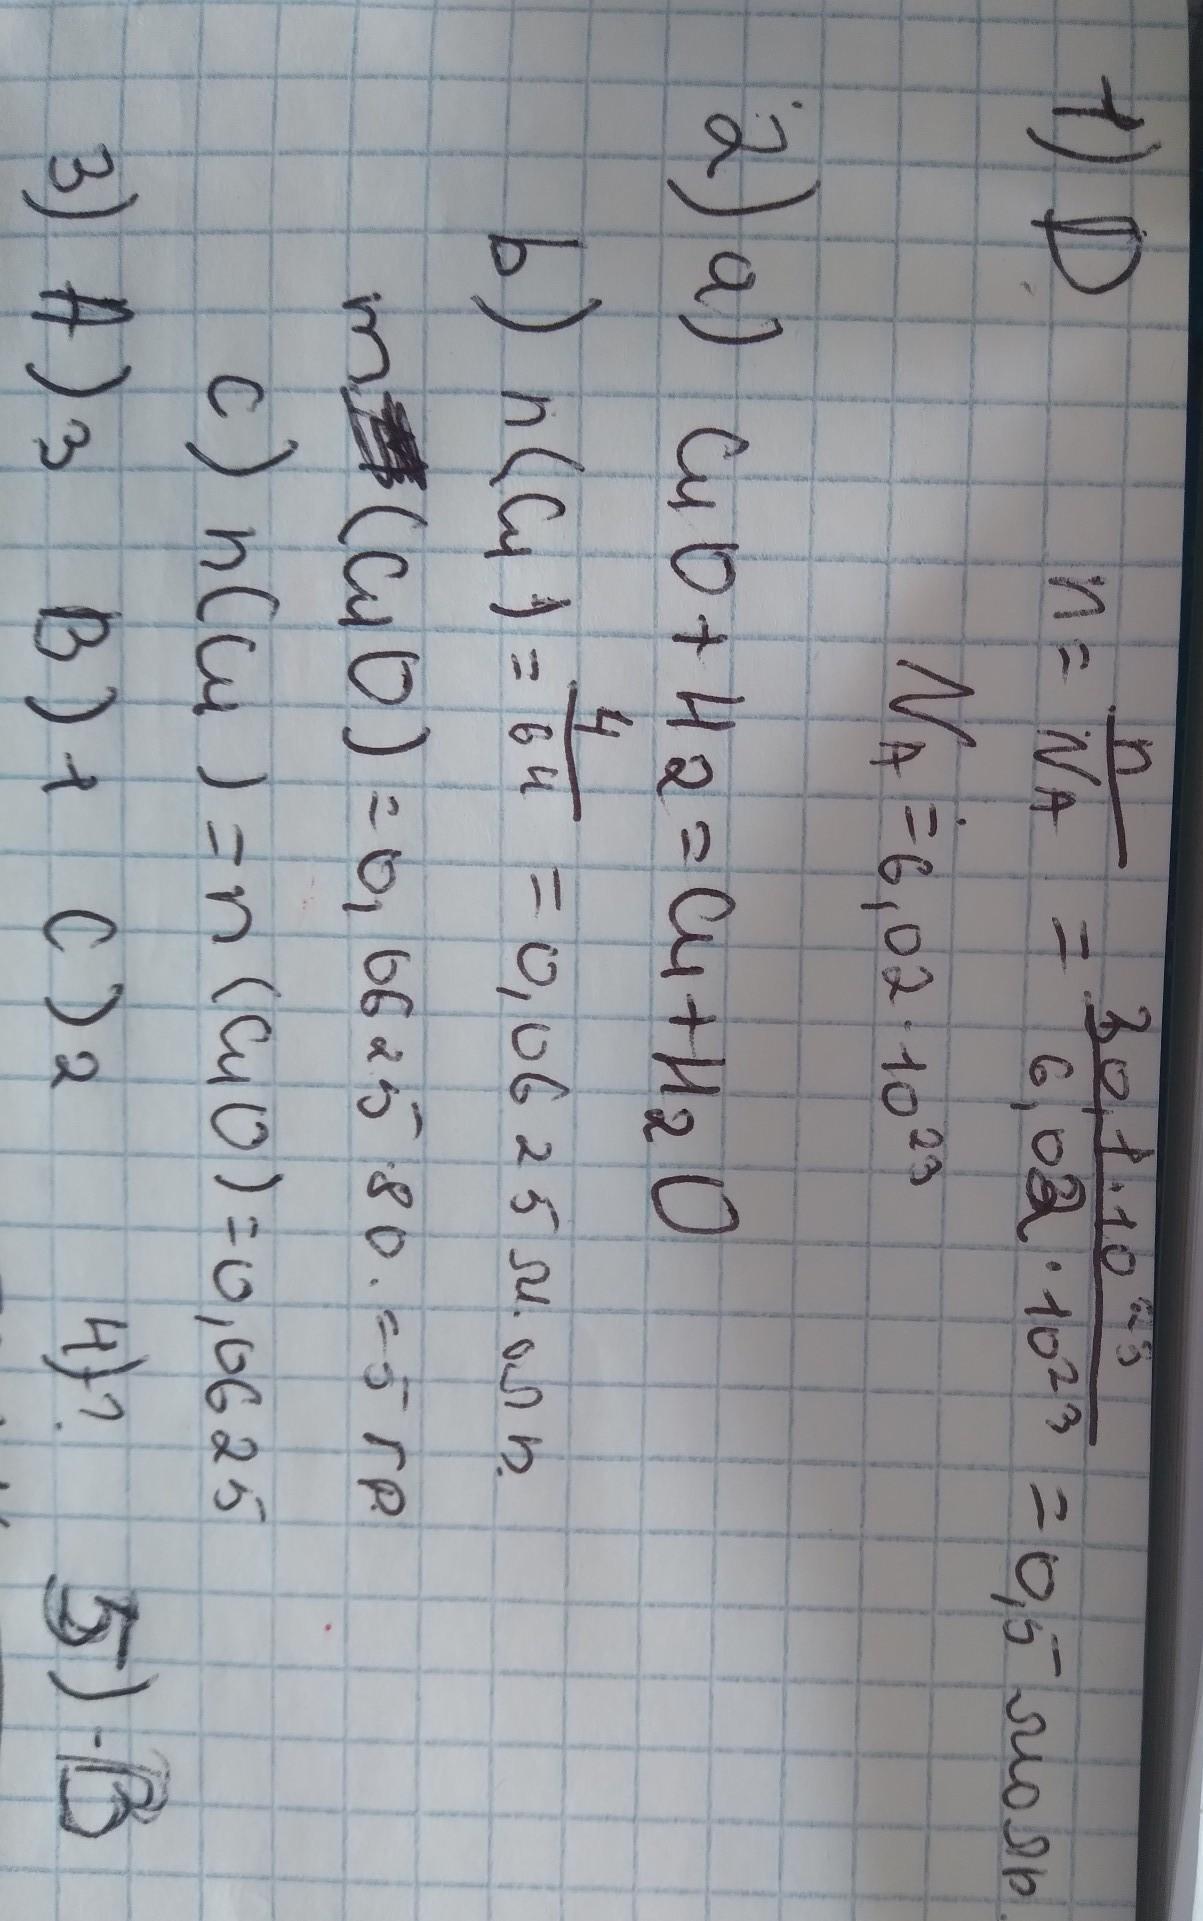 1) D n = n/NA = 3,01·10²³/6,02·10²³ = 0,5 моль
NA = 6,02·10²³
2) a) CuO + H2 = Cu + H2O
b) n(Cu) = 4/64 = 0,0625 моль.
m(CuO) = 0,0625·80. = 5 гр
c) n(Cu) = n(CuO) = 0,0625
3) A) 3 B) 1 C) 2 4) ? 5) - B